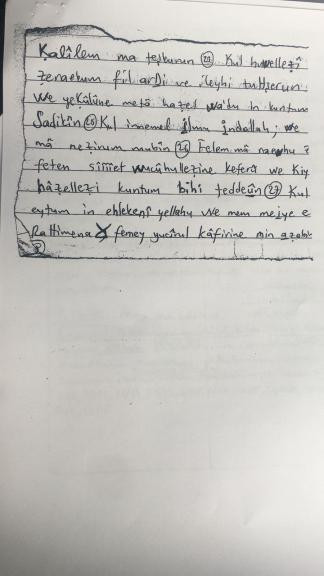 Kalîlem ma teşkurun (23) Kul huvellezî
zeraekum fil ardi ve ileyhi tuhşerun
We yekûlûne metâ hazel wa'du in kuntum
Sadikîn (25) Kul innemel ilmu indallah; we
mâ nezirum mubîn (26) Felem mâ raevhu z
feten sîîet wucûhullezine keferû we Kiy
hâzellezi kuntum bihi teddeûn (27) Kul
eytum in ehlekenî yellahu We mem meiye e
Rahimena femey yucirul kâfirine min azabi